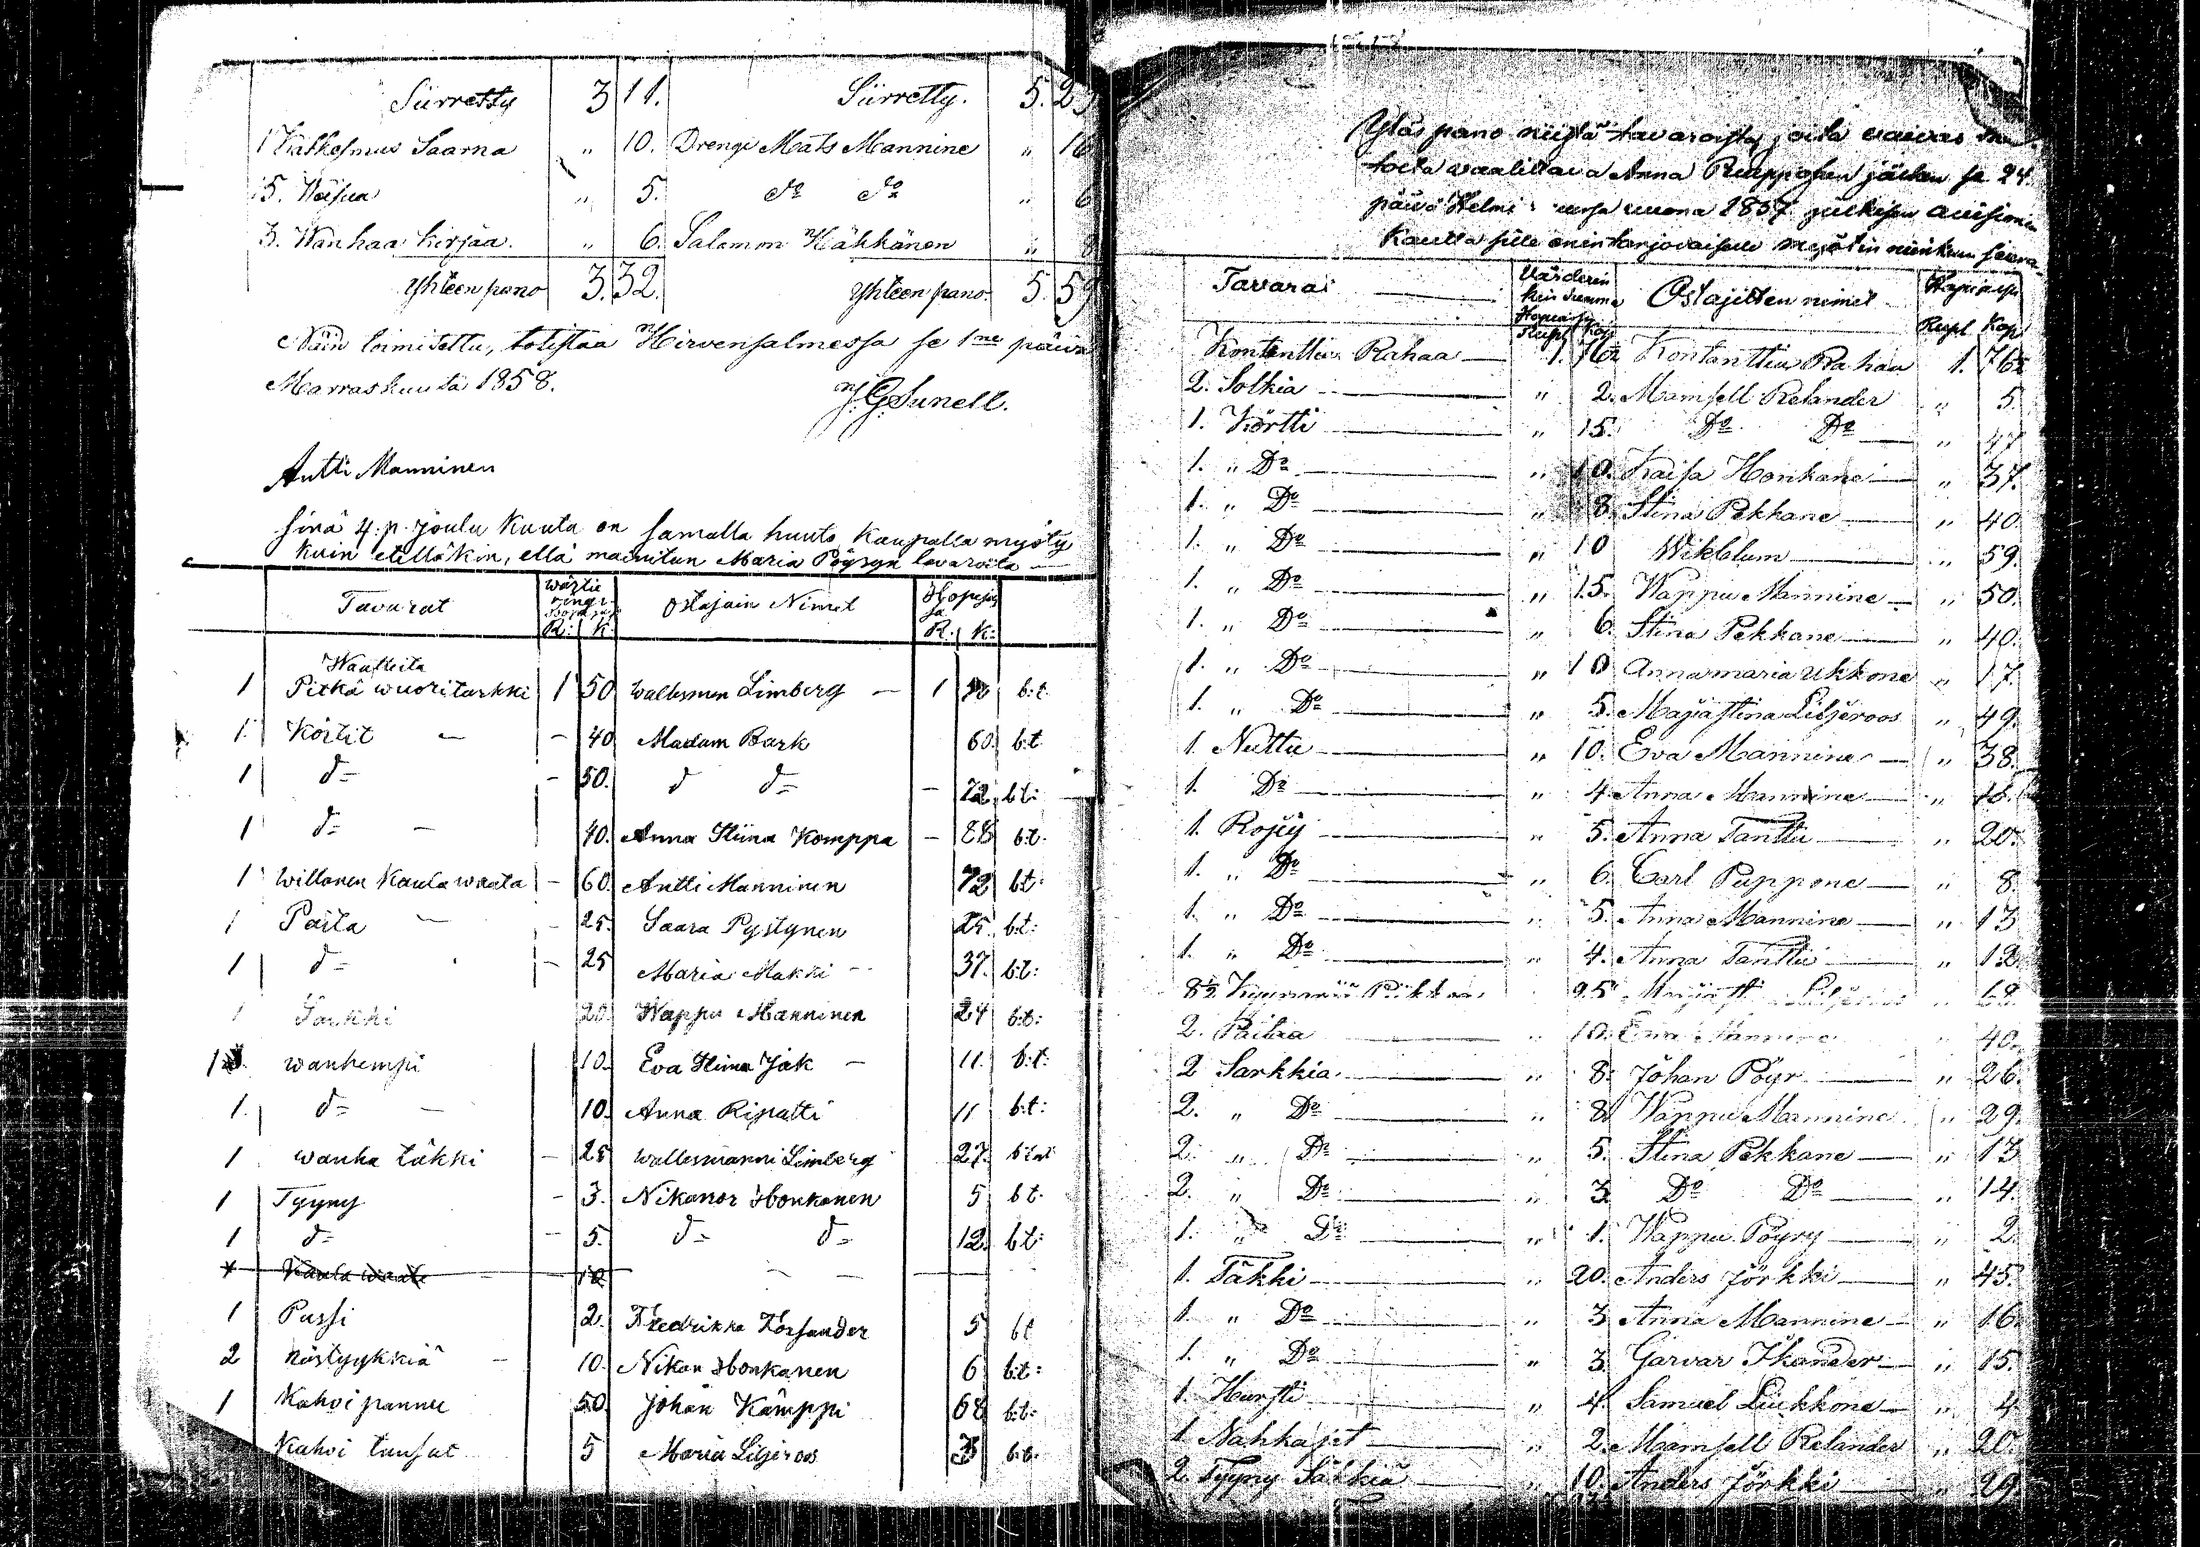 Siirretty 3 11. Siirretty. 5. 25
1 Katkesmus Saarna " 10. Drengi Mats Mannine " 16
5. Weisua " 5. do do " 6
3. Wanhaa kirjaa. " 6. Salamon Häkkänen " 8
Yhteen pano 3. 32. Yhteen pano. 5. 59
Näin toimitettu, totistaa Hirvensalmessa se 1ne päivä
Marraskuuta 1858. J. G. Sunell.
Antti Manninen
sinä 4. p. joulu kuuta on samalla huuto kaupalla myöty
kuin etelläkin, ellä mainitun Maria Pöysyn tavaroita
Tavarat R: K: Ostajain Nimet Hopejassa R. K:
Waatteita
1 Pitkä wuoritarkki 1 50 wallesman Limberg — 1 b:t.
1. Körtit — – 40 Madam Bark 60. b:t
1 d= – 50. d d= – 72. b.t:
1 d= – 40. Anna Stiina Komppa – 88 b:t.
1 willanen Kaula waata – 60. Antti Manninen 72 b.t:
1 Paita – – 25. Saara Pystynen 25. b.t:
1 d= – 25 Maria Makki – 37. b.t:
1 Sarkki 20. Wappu Manninen 24 b:t:
1 wanhempi 10. Eva Stina Jak – 11. b:t:
1. d= – 10. Anna Ripatti 11 b:t:
1 wanha täkki – 25 wallesmanni Limberg 27.
1 Tyyny – 3. Nikanor Honkanen 5 b t.
1 d= – 5. d= d= 12. b t:
Kaula waate 10 – –
1 Pussi 2. Fredrikka Forsander 5 b t
2 nästyykkiä – 10. Nikan Honkanen 6 b:t:
1 Kahvi pannu 50. Johan Kämppi 68 b:t:
Kahvi tassut 5 Maria Liljeroos b:t:
Ylös pano niistä tavaroista, joita vaivas
toita waalittava Anna Ruapposen jälken se 24.
päivä Helmi kuusa vuona 1857 julkisen auksionin
kautta sille enin tarjovaiselle myötiin niinkuin seura
Tavarai Värderin kuin summa Hopiassa Rupl Kop Ostajitten nimet Hopiassa Rupl Kop
Kontanttia Rahaa — 1. 76½ Kontanttia Rahaa 1. 76½
2. Solkia — " 2. Mamsell Relander " 5.
1. Körtti — " 15. Do Do — " 47
1. " Do — " 10. Kaisa Honkane — " 37.
1. " Do — 8. Stina Pekkane — " 40.
1. " Do — " 10 Wikblum — " 59.
1. " Do — " 15. Wappu Mannine — " 50.
1. " Do — " 6. Stina Pekkane — " 40.
1. " Do — " 10 Annamaria Ukkone " 17.
1. " Do — " 5. Majastina Liljeroos " 49.
1. Nuttu — " 10. Eva Mannine — " 38.
1. Do — " 4. Anna Mannine —
1. Rojy — " 5. Anna Tanttu — " 20.
1. " Do — " 6. Carl Puppone — " 8.
1. " Do — " 5. Anna Mannine — " 13
1. " Do — " 4. Anna Tanttu — " 12.
8½ Kyynärää 25 Liljeroos 68
2. Paitaa " 10. Eva Mannine " 40.
2 Sarkkia — " 8. Johan Pöyr — " 26.
2. " Do — " 8. Wappu Mannine " 29.
2. " Do — " 5. Stina Pekkane — " 13
2. " Do — " 3. Do Do — " 14.
1. " Do — " 1. Wappu Pöyry — " 2.
1. Täkki — " 20. Anders Jörkki — " 45.
1. " Do — " 3 Anna Mannine — " 16.
1. " Do — " 3. Garvar Ikander — " 15.
1. Hursti — " 4. Samuel Liukkone — " 4
1 Nahkajet — " 2. Mamsell Relander " 20.
2. Tyyny Säkkiä " 10. Anders Jörkki — " 29.